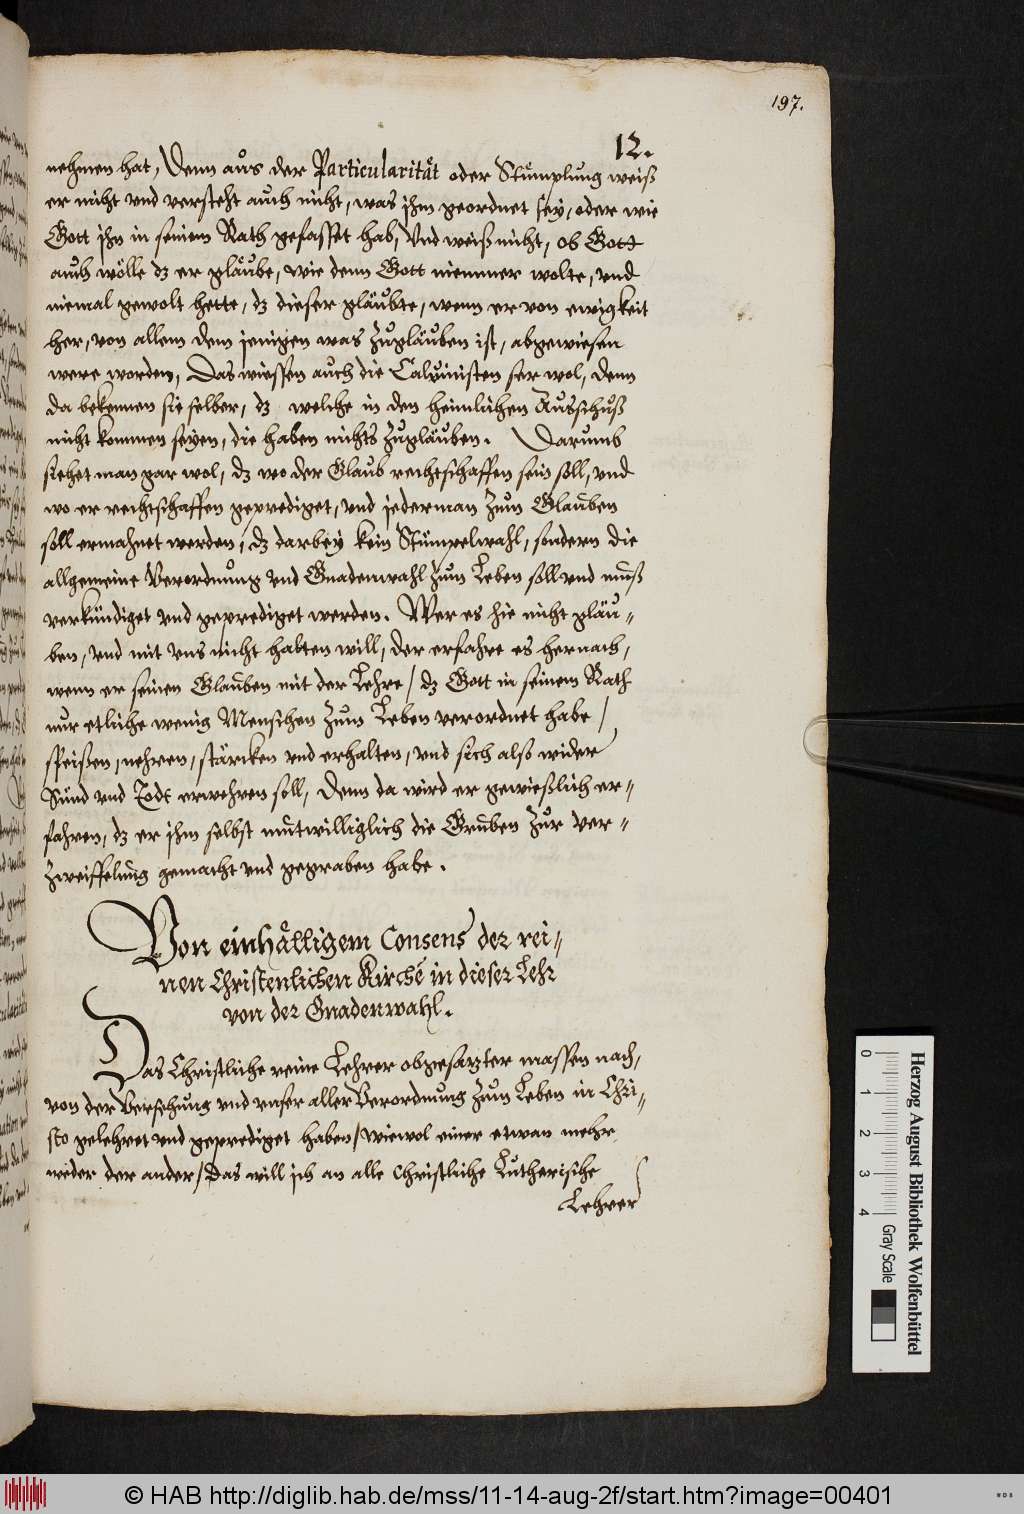 197.
12.
nehmen hat, Denn aus der Particularität oder Stümplung weiß
er nicht vnd versteht auch nicht, was ihm geordnet sey, oder wie
Gott ihn in seinem Rath gefasset hab, Vnd weiß nicht, ob Gott
auch wölle dz er gläube, wie denn Gott niemmer wolte, vnd
niemal gewolt hette, dz dieser gläubte, wenn er von ewigkeit
her, von allem dem jenigen was zugläuben ist, abgewiesen
were worden, Das wiessen auch die Calvinisten ser wol, denn
da bekennen sie selber, dz welche in den heimlichen Ausschuß
nicht kommen seyen, die haben nichts zugläuben. Darumb
siehet man gar wol, dz wo der Glaub rechtschaffen sein soll, vnd
wo er rechtschaffen geprediget, vnd jederman zum Glauben
soll ermahnet werden, dz darbey kein Stümpelwahl, sondern die
allgemeine Verordnung vnd Gnadenwahl zum Leben soll vnd muß
verkündiget vnd geprediget werden. Wer es hie nicht gläu-
ben, vnd mit vns nicht halten will, der erfahre es hernach,
wenn er seinen Glauben mit der Lehre / dz Gott in seinem Rath
nur etliche wenig Menschen zum Leben verordnet habe /
speißen, nehren, stärcken vnd erhalten, vnd sich also wider
Sünd vnd Todt erwehren soll, Denn da wird er gewießlich er-
fahren, dz er ihm selbst mutwilliglich die Gruben zur ver-
zweiffelung gemacht vnd gegraben habe.
Von einhälligem Consens der rei-
nen Christenlichen Kirche in dieser Lehr
von der Gnadenwahl.
Das Christliche reine Lehrer obgesatzter massen nach,
von der Versehung vnd vnser aller Verordnung zum Leben in Chri-
sto gelehret vnd geprediget haben / wiewol einer etwan mehr
weder der ander / Das will ich an alle Christliche Lutherische
Lehrer
0 1 2 3 4
Gray Scale
Herzog August Bibliothek Wolfenbüttel
© HAB http://diglib.hab.de/mss/11-14-aug-2f/start.htm?image=00401
WDB